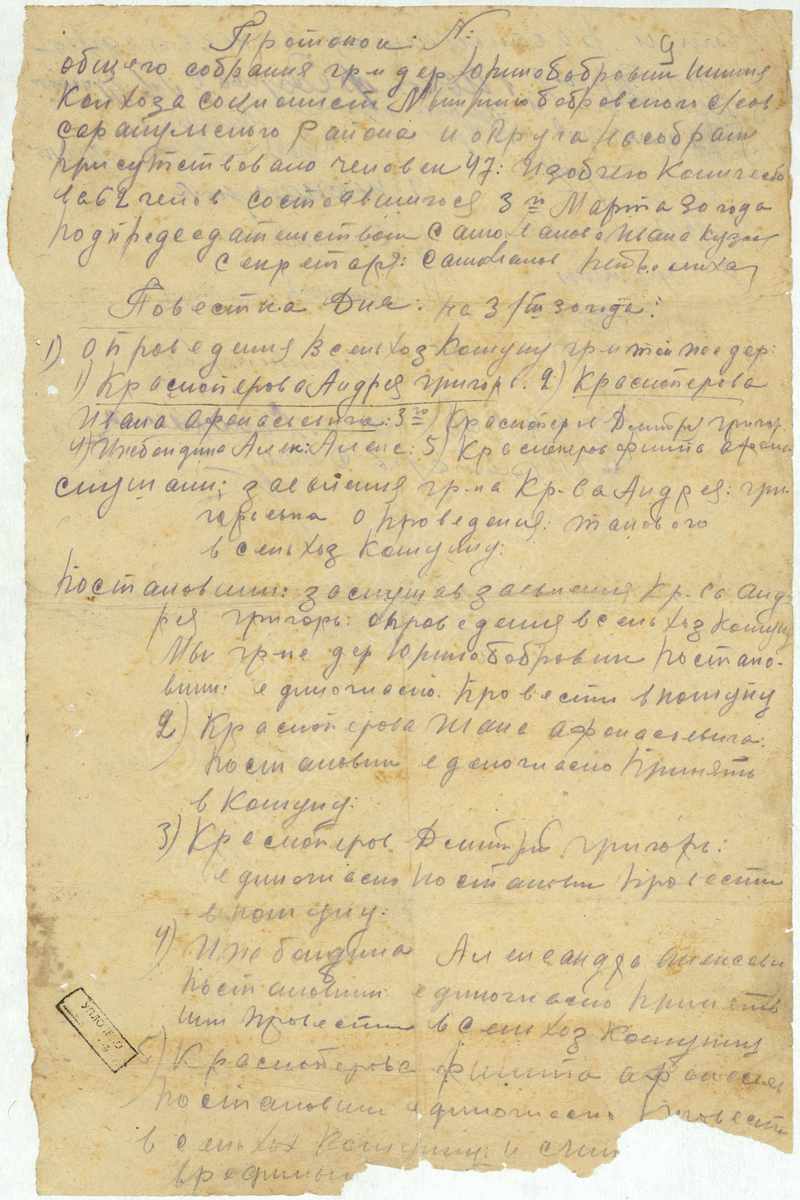 Протокол: N:
9
общего собрания гр-н дер Юринобобровки Имина
Колхоза социалист Мыркинобобровского с/сов
Сарапульского Района и округа На собрани
присутствовало человек 47: Из общего Количество
ва 62 челов состоявшигося 3го Марта 30 года
под председательством Самовалово Ивана Кузм
Секретаря: Самовалов
Повестка Дня: на 3/III 30 года:
1) О проведения в сельхоз Комуну гр-н той же дер:
1) Красноперова Андрея Григорь. 2) Красноперова
Ивана Афонасьевича: 3го) Красноперов Дмитрея Григор
4) Ижболдина Алек: Алекс: 5) Красноперов Филипа Афона
Слушали: заевления гр-на Кр-ва Андрея: Гри-
горьевича О проведения: такового
в сельхоз Комуну:
Постановили: заслушав заевления Кр-ва Анд-
рея Григорь: о проведения в сельхоз Комуну
Мы гр-не дер Юринобобровки Постано-
вили: единогласно. Провести в комуну
2) Красноперова Ивана Афонасьевича:
Постановили единогласно Принять
в Комуну:
3) Красноперов Дмитрей Григорь:
единогласно Постановили Провести
в комуну:
4) Ижболдина Александр Алексеев
Постановили единогласно Принять
или Провести в сельхоз Комуну
5) Красноперова Филипа Афонасьев
Постановили единогласно Провести
в сельхоз Комуну: и